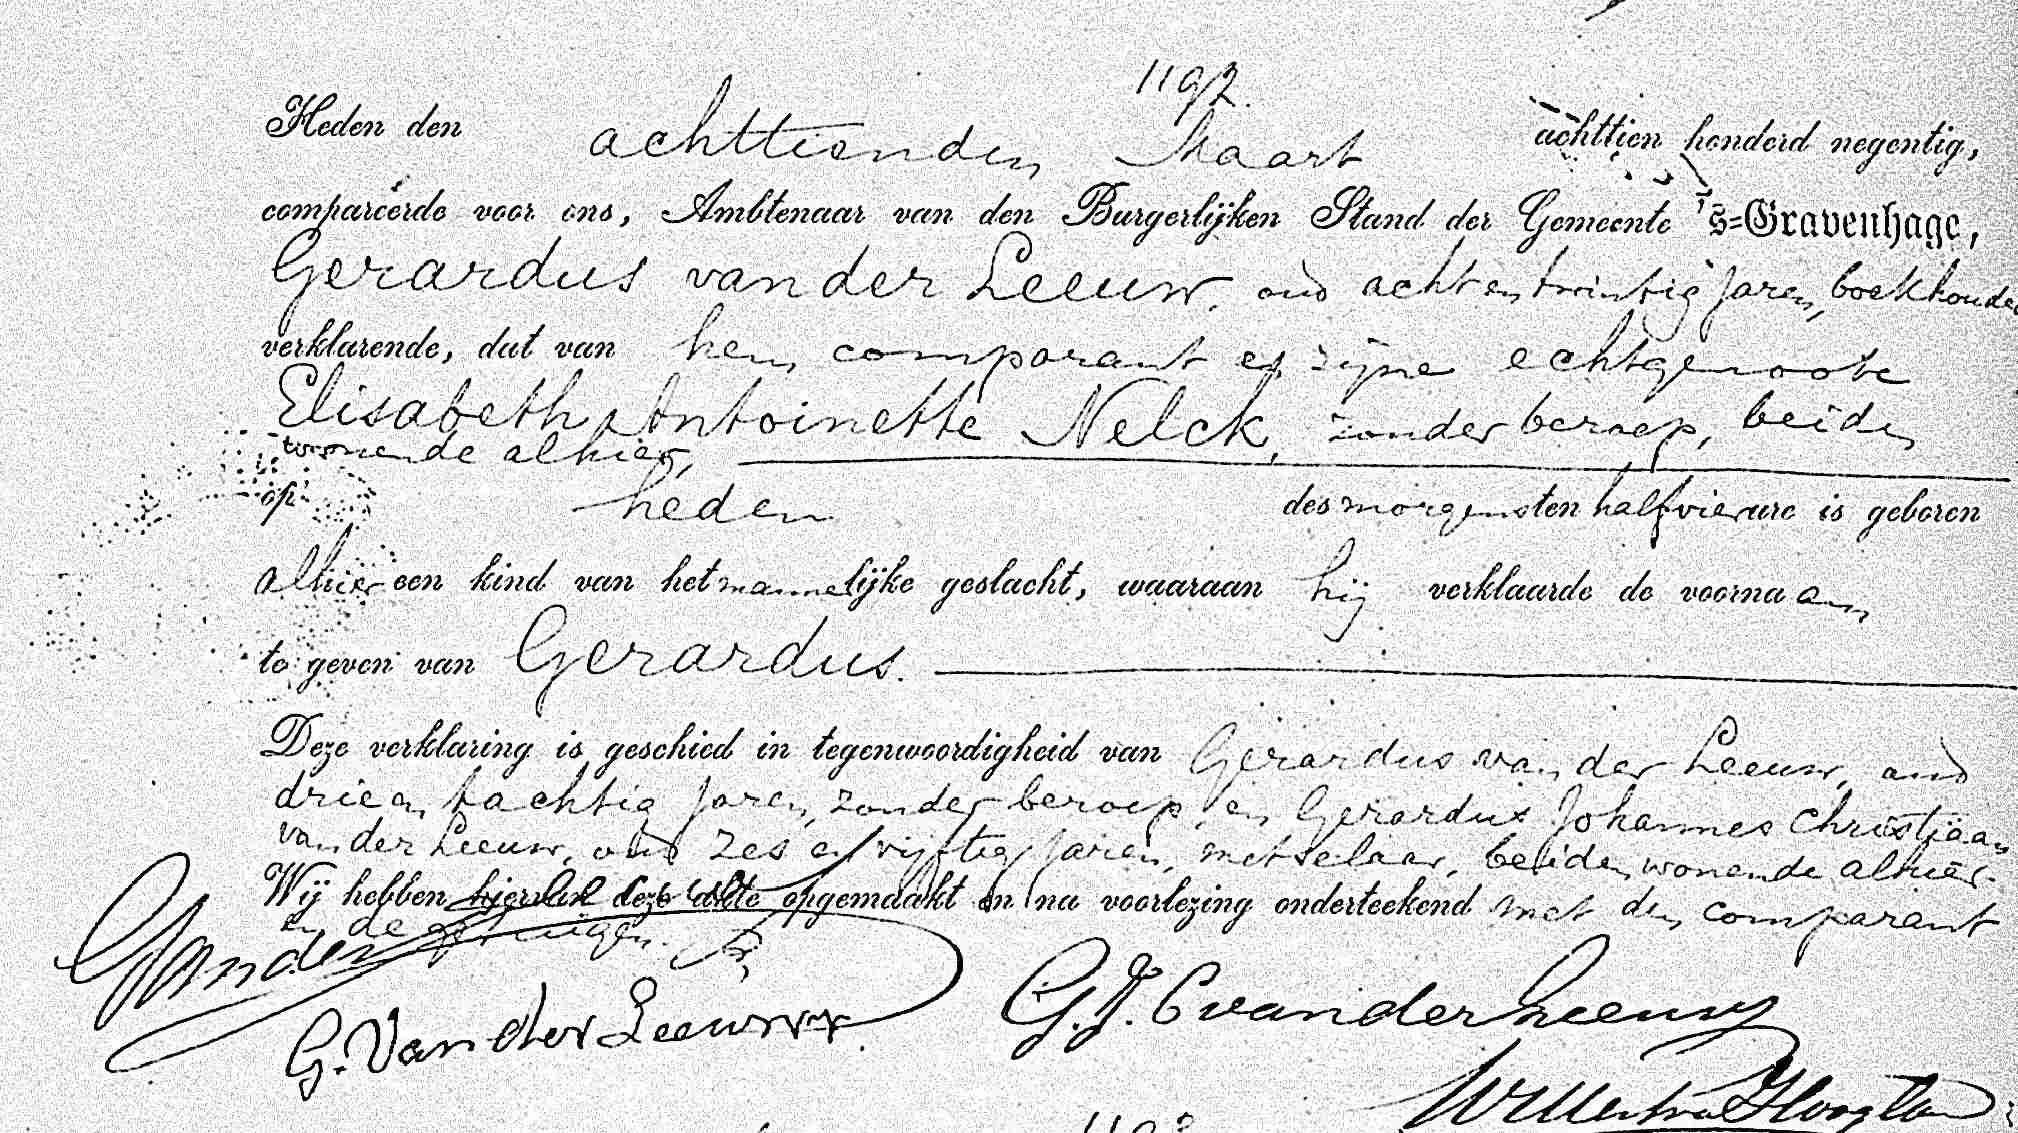 1192.
Heden den achttienden Maart achttien honderd negentig,
compareerde voor ons, Ambtenaar van den Burgerlijken Stand der Gemeente 's=Gravenhage,
Gerardus van der Leeuw, oud acht en twintig jaren, boekhouder
verklarende, dat van hem comparant en zijne echtgenoote
Elisabeth Antoinette Nelck, zonder beroep, beiden
wonende alhier,
op heden des morgens ten half vier ure is geboren
alhier een kind van het mannelijke geslacht, waaraan hij verklaarde de voornaam
te geven van Gerardus.
Deze verklaring is geschied in tegenwoordigheid van Gerardus van der Leeuw, oud
drie en tachtig jaren, zonder beroep, en Gerardus Johannes Christiaan
van der Leeuw, oud zes en vijftig jaren, metselaar, beiden wonende alhier.
Wij hebben hiervan deze akte opgemaakt en na voorlezing onderteekend met den comparant
en de getuigen.
GVander
G. Van der Leeuw
G. J. C van der Leeuw